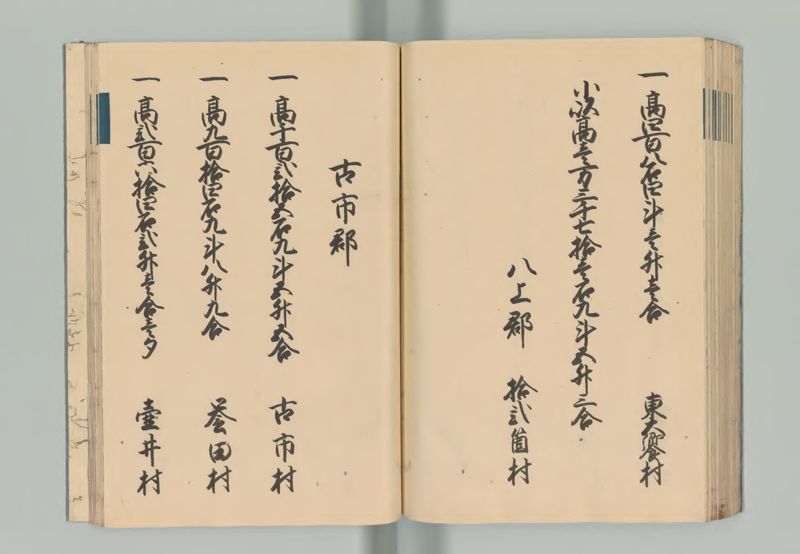 一高四百八石四斗壱升壱合 東大饗村
小以高壱万三千七拾壱石九斗五升三合
八上郡 拾弐箇村
古市郡
一高千百弐拾五石九斗五升五合 古市村
一高九百拾四石九斗八升九合 誉田村
一高弐百六拾四石弐升壱合壱夕 壷井村